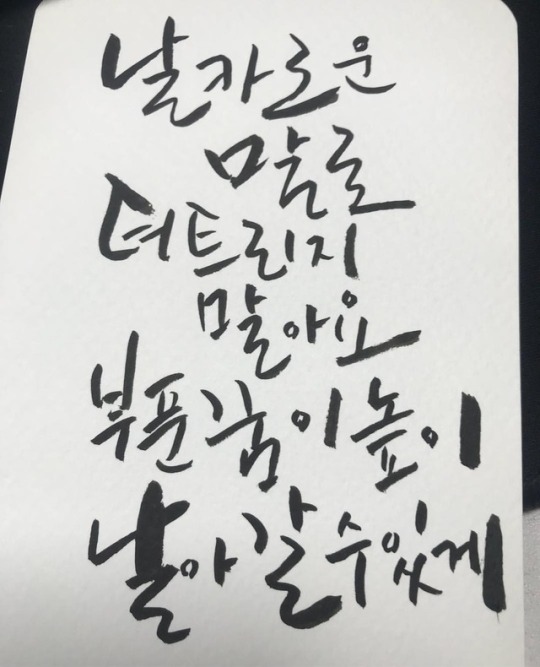 날카로운
말로
터트리지
말아요
부푼 꿈이 높이
날아갈 수 있게